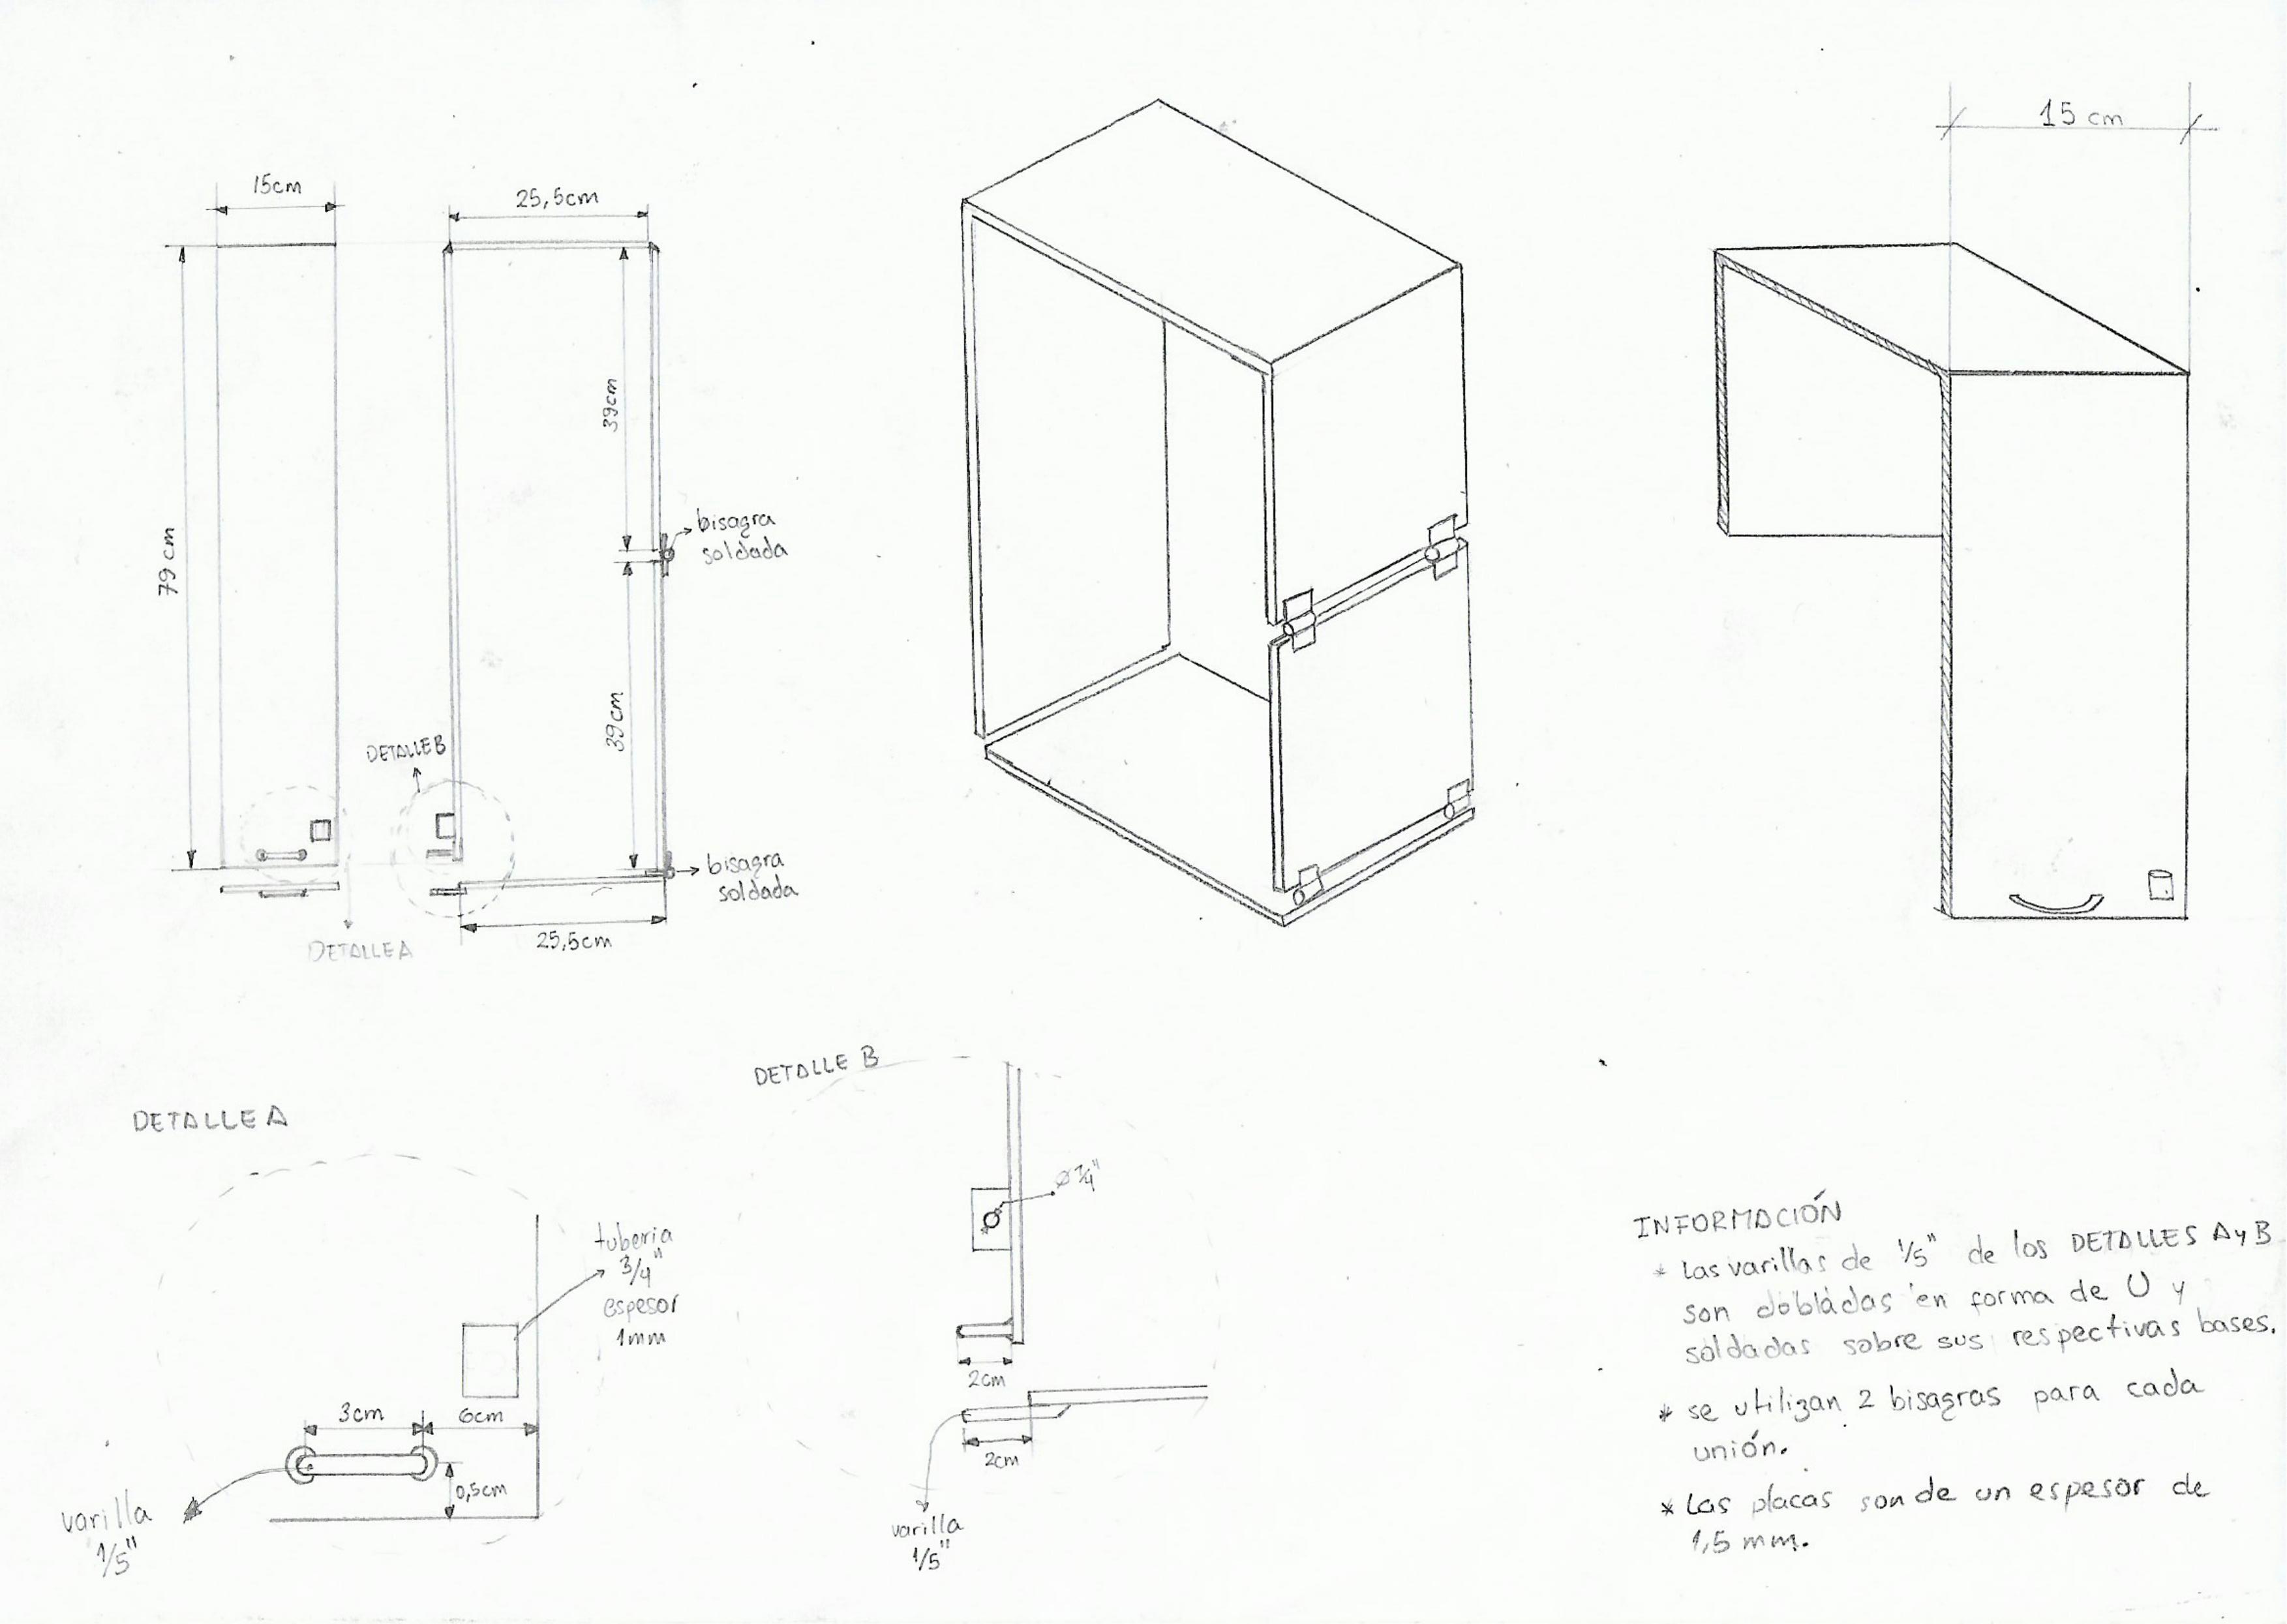 15cm
25,5cm
15 cm
79 cm
39cm
bisagra
soldada
39cm
DETALLE B
bisagra
soldada
25,5cm
DETALLE A
DETALLE A
tuberia
3/4"
espesor
1mm
3cm
6cm
0,5cm
varilla
1/5"
DETALLE B
2cm
2cm
varilla
1/5"
INFORMACIÓN
* Las varillas de 1/5" de los DETALLES A y B
son dobladas en forma de U y
soldadas sobre sus respectivas bases.
* se utilizan 2 bisagras para cada
unión.
* Las placas son de un espesor de
1,5 mm.